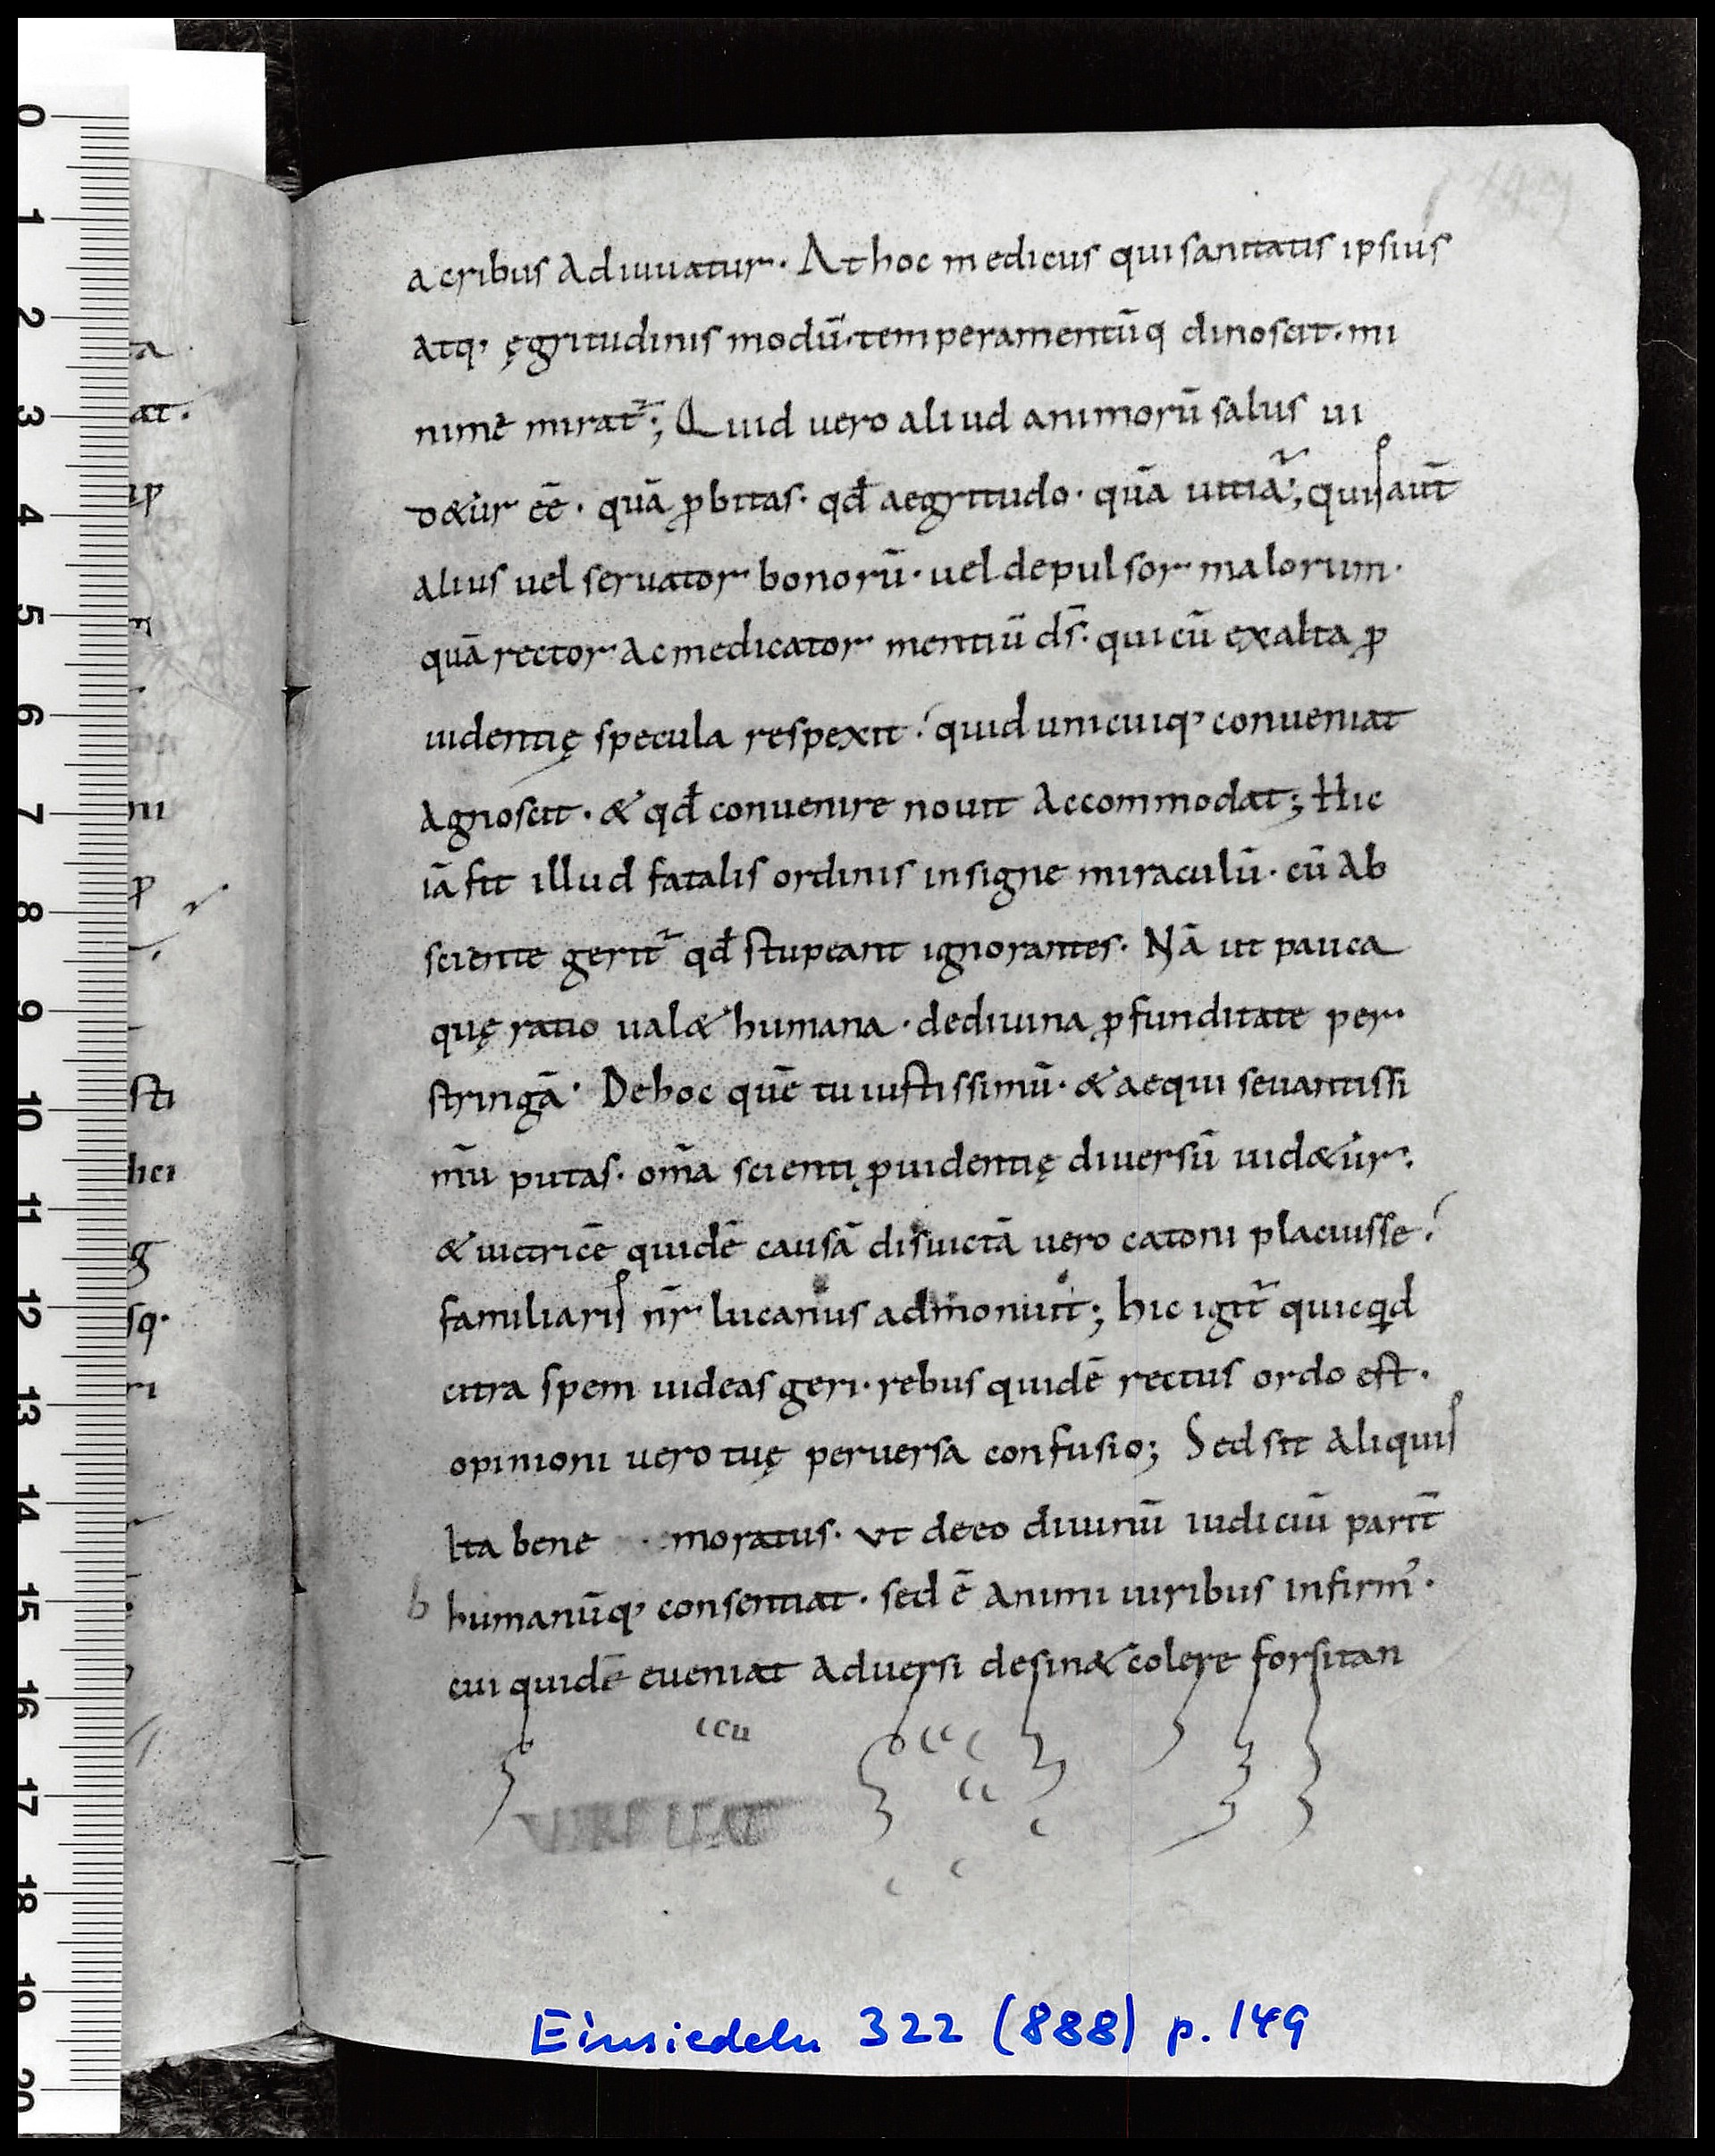 acribus adiuuatur. At hoc medicus qui sanitatis ipsius
atq; ęgritudinis modū. temperamentūq dinoscit. mi
nimē mirat̃; Quid uero aliud animorū salus ui
d&ur eē. quā ꝓbitas. qđ aegritudo. quā uitia; quis aut̄
alius uel seruator bonorū. uel depulsor malorum.
quā rector ac medicator mentiū ds̄. qui cū ex alta ꝓ
uidentię specula respexit? quid unicuiq; conueniat
agnoscit. & qđ conuenire nouit accommodat; Hic
iā fit illud fatalis ordinis insigne miraculū. cū ab
sciente gerit̃ qđ stupeant ignorantes. Nā ut pauca
quę ratio ual& humana. de diuina ꝓfunditate per
stringā. De hoc quē tu iustissimū. & aequi seuantissi
mū putas. om̄a scienti ꝓuidentię diuersū uid&ur.
& uictricē quidē causā dis uictā uero catoni placuisse?
familiaris nr̄ lucanus admonuit; hic igit̃ quicqd
citra spem uideas geri. rebus quidē rectus ordo est.
opinioni uero tuę peruersa confusio; Sed sit aliquis
Ita bene moratus. ut de eo diuinū iudiciū parit̄
b humanūq; consentiat. sed ē animi uiribus infirm᾿.
cui quidē eueniat aduersi desin& colere forsitan
ccu
Einsiedeln 322 (888) p. 149